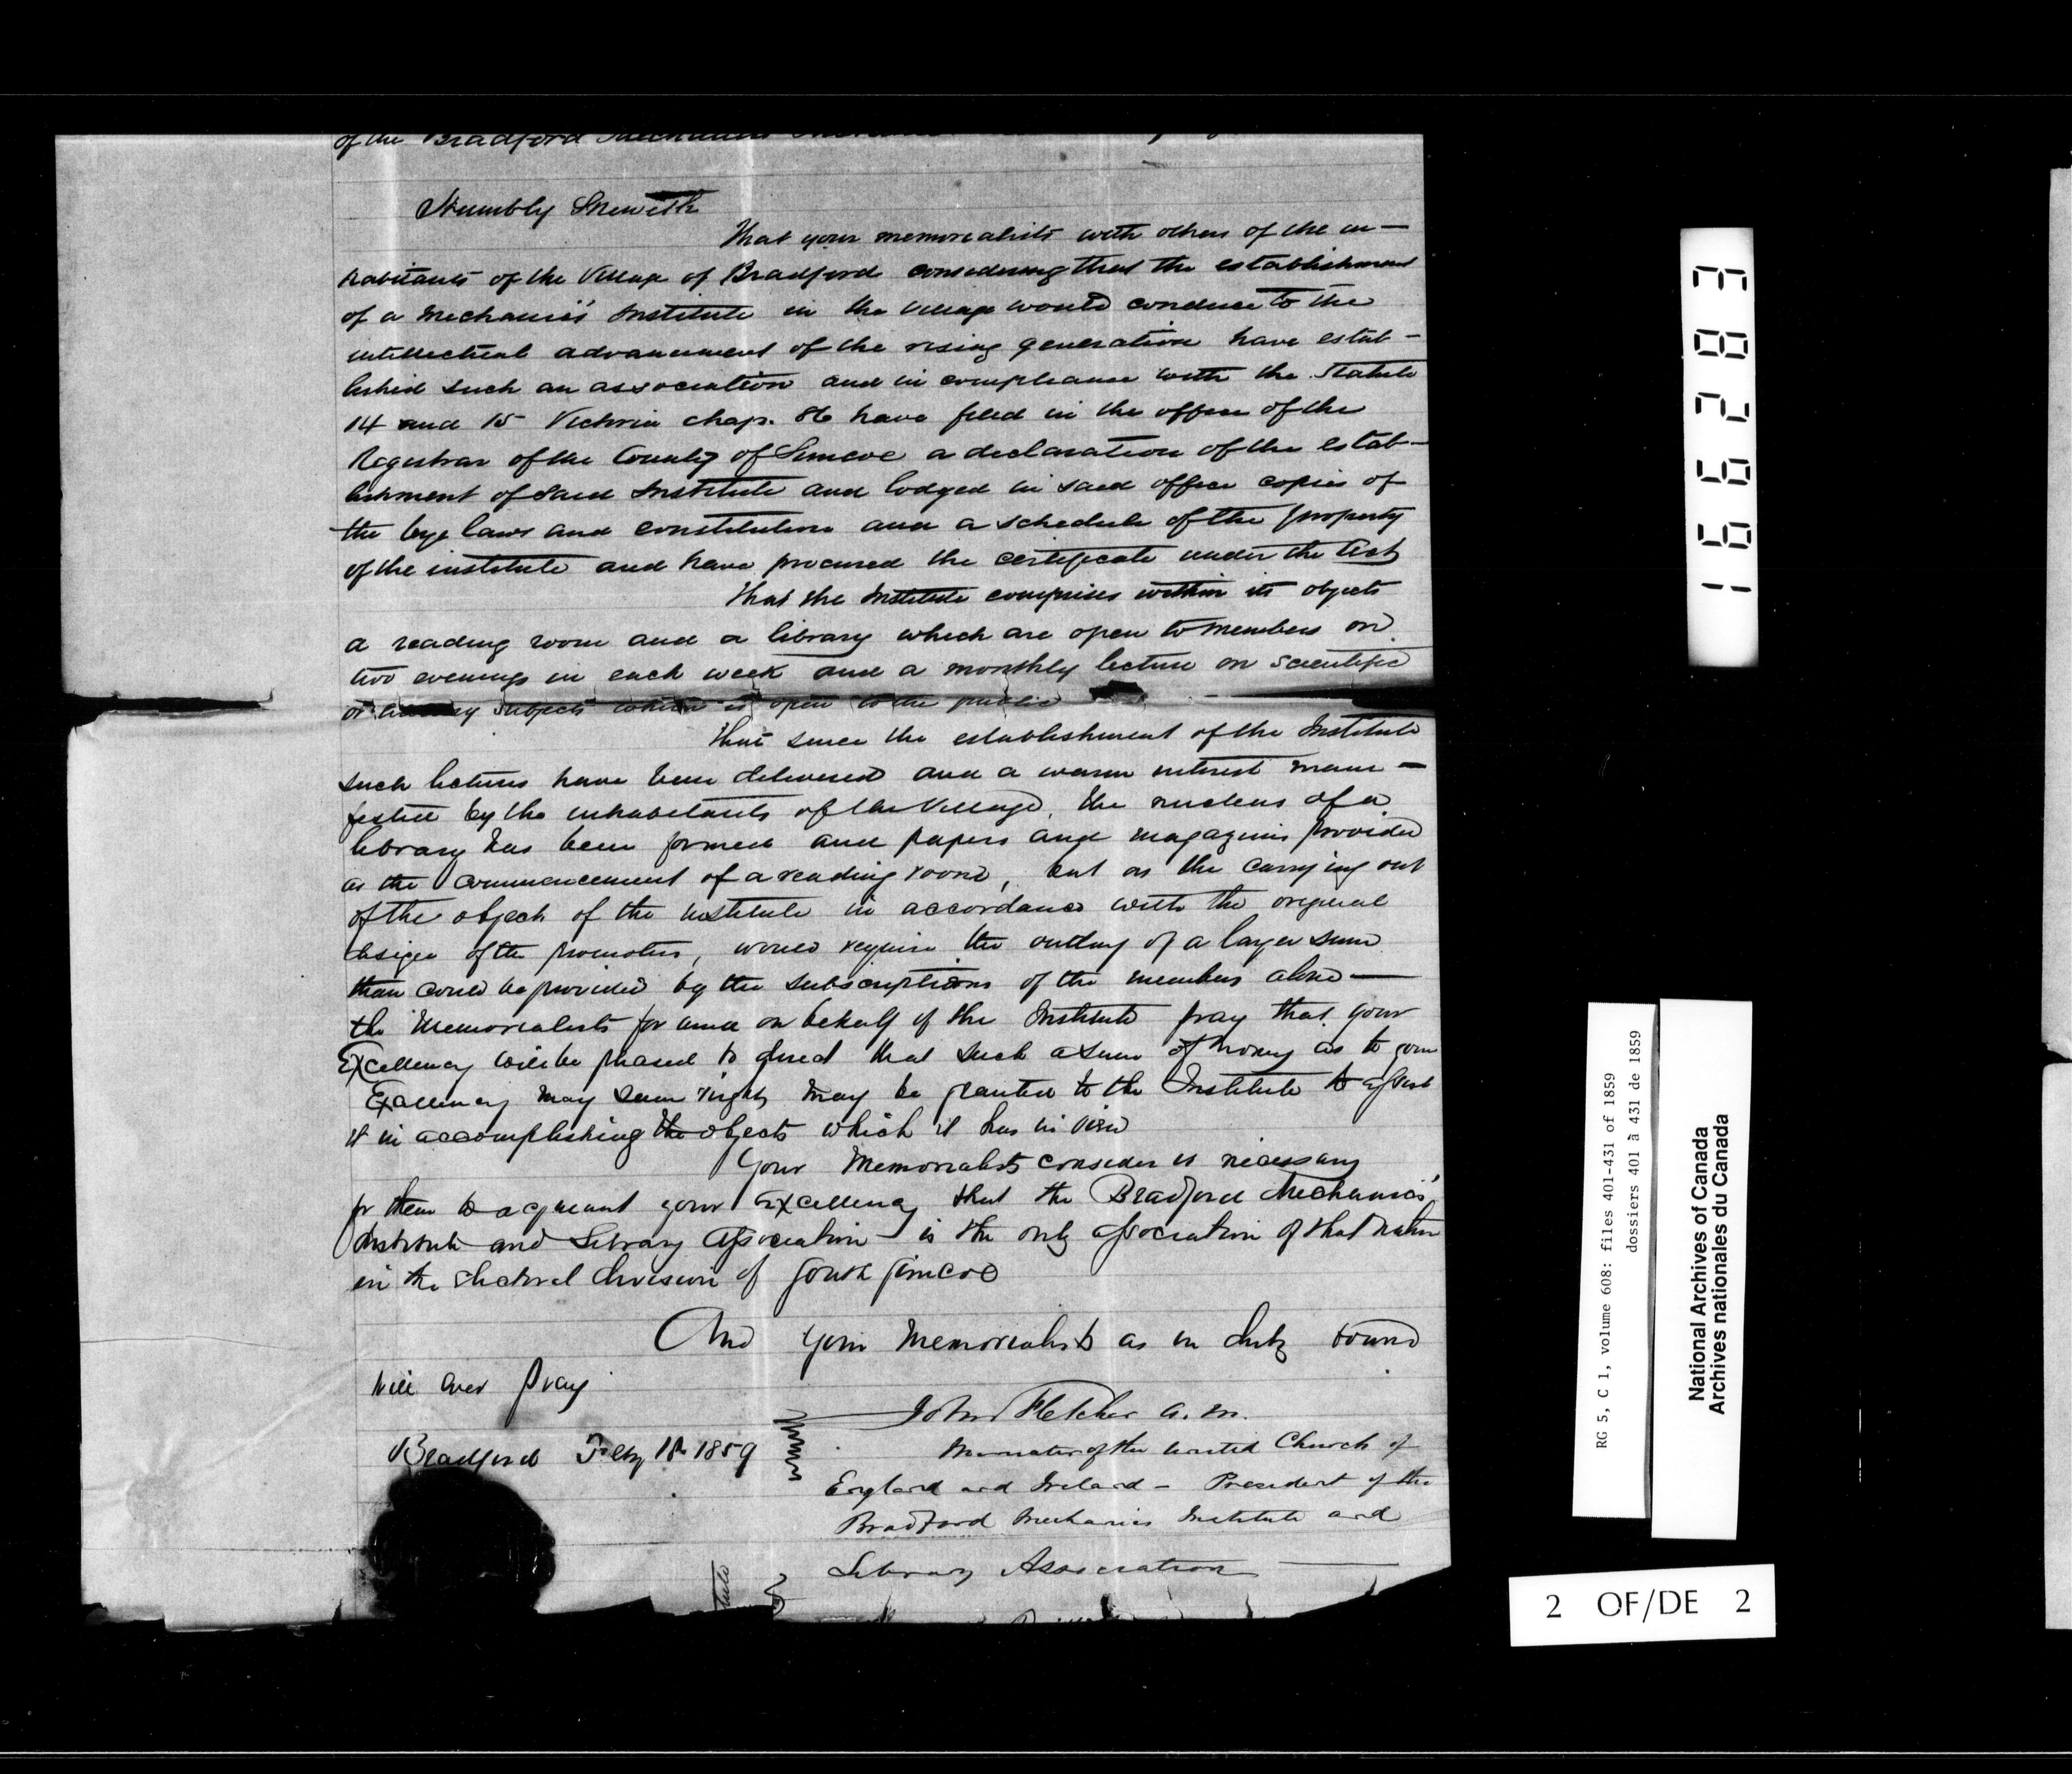 of the Bradford Mechanics
Humbly Sheweth
That your memorialists with others of the in-
habitants of the Village of Bradford considering that the establishment
of a Mechanics' Institute in the Village would conduce to the
intellectual advancement of the rising generation have estab-
lished such an association and in compliance with the Statute
14 and 15 Victoria chap. 86 have filed in the office of the
Registrar of the County of Simcoe a declaration of the estab-
lishment of said Institute and lodged in said office copies of
the bye laws and constitution and a schedule of the property
of the institute and have procured the certificate under the Act
That the Institute comprises within its objects
a reading room and a library which are open to members on
two evenings in each week and a monthly lecture on scientific
or literary subjects which is open to the public
That since the establishment of the Institute
such lectures have been delivered and a warm interest mani-
fested by the inhabitants of the Village, the nucleus of a
library has been formed and papers and magazines provided
as the commencement of a reading room, but as the carrying out
of the objects of the institute in accordance with the original
design of the promoters, would require the outlay of a larger sum
than could be provided by the subscriptions of the members alone —
the Memorialists for and on behalf of the Institute pray that your
Excellency will be pleased to direct that such a sum of money as to your
Excellency may seem right may be granted to the Institute to assist
it in accomplishing the objects which it has in view
Your Memorialists consider it necessary
for them to acquaint your Excellency that the Bradford Mechanics'
Institute and Library Association is the only association of that nature
in the electoral division of South Simcoe
And your Memorialists as in duty bound
will ever pray
John Fletcher A.M.
Bradford Feby 18 1859
Minister of the United Church of
England and Ireland - President of the
Bradford Mechanics Institute and
Library Association
166283
RG 5, C 1, volume 608: files 401-431 of 1859
dossiers 401 à 431 de 1859
National Archives of Canada
Archives nationales du Canada
2 OF/DE 2